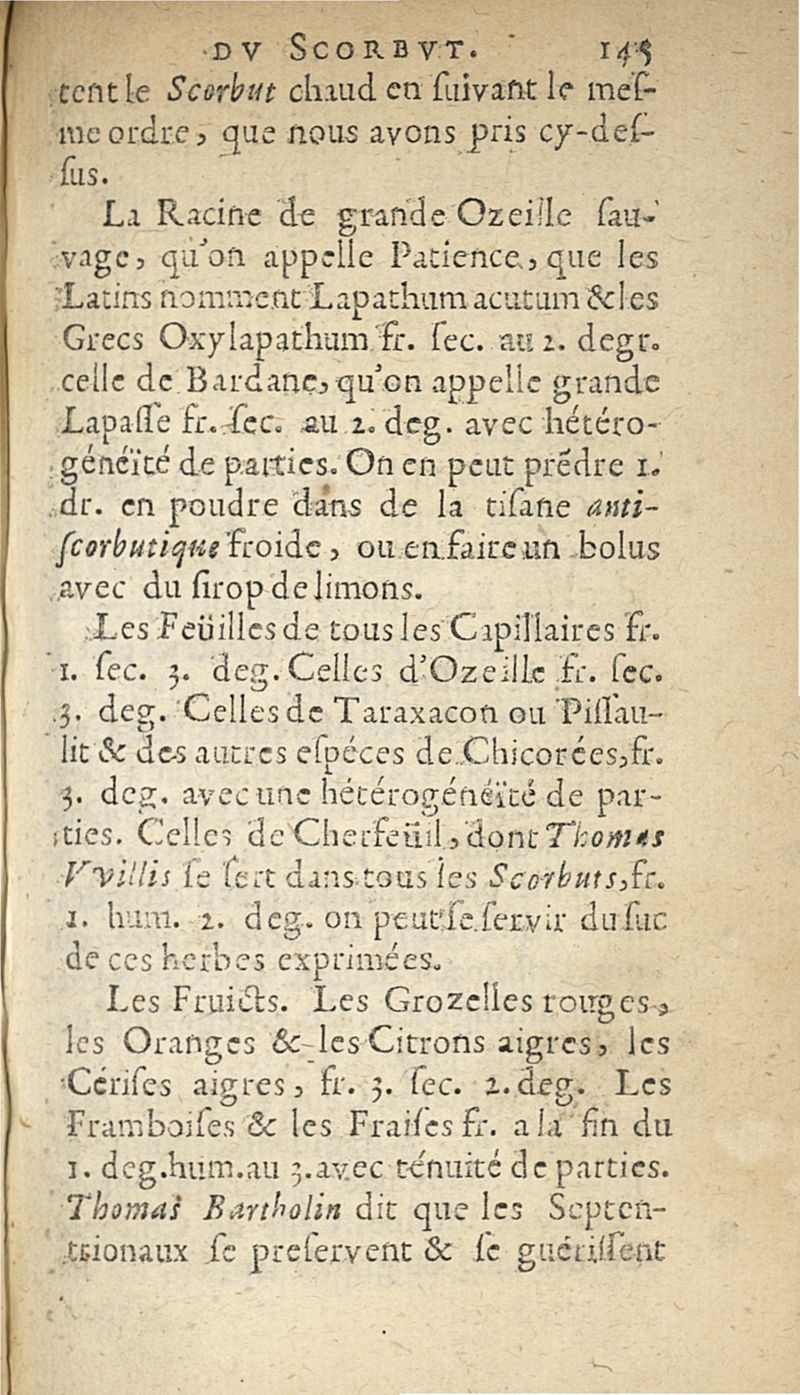 DV SCORBVT. 145
tent le Scorbut chaud en ſuivant le meſ-
me ordre, que nous avons pris cy-deſ-
ſus.
La Racine de grande Ozeille ſau-
vage, qu'on appelle Patience, que les
Latins nomment Lapathum acutum & les
Grecs Oxylapathum fr. ſec. au 2. degr.
celle de Bardane, qu'on appelle grande
Lapaſſe fr. ſec. au 2. deg. avec hétéro-
généïté de parties. On en peut prẽdre 1.
dr. en poudre dans de la tiſane anti-
ſcorbutique froide, ou en faire un bolus
avec du ſirop de limons.
Les Feüilles de tous les Capillaires fr.
1. ſec. 3. deg. Celles d'Ozeille fr. ſec.
3. deg. Celles de Taraxacon ou Piſſau-
lit & des autres eſpéces de Chicorées, fr.
3. deg. avec une hétérogénéïté de par-
ties. Celles de Cherfeüil, dont Thomas
Vvillis ſe ſert dans tous les Scorbuts, fr.
1. hum. 2. deg. on peut ſe ſervir du ſuc
de ces herbes exprimées.
Les Fruicts. Les Grozelles rouges,
les Oranges & les Citrons aigres, les
Cériſes aigres, fr. 3. ſec. 2. deg. Les
Framboiſes & les Fraiſes fr. a la fin du
1. deg. hum. au 3. avec ténuité de parties.
Thomas Bartholin dit que les Septen-
trionaux ſe preſervent & ſe guériſſent